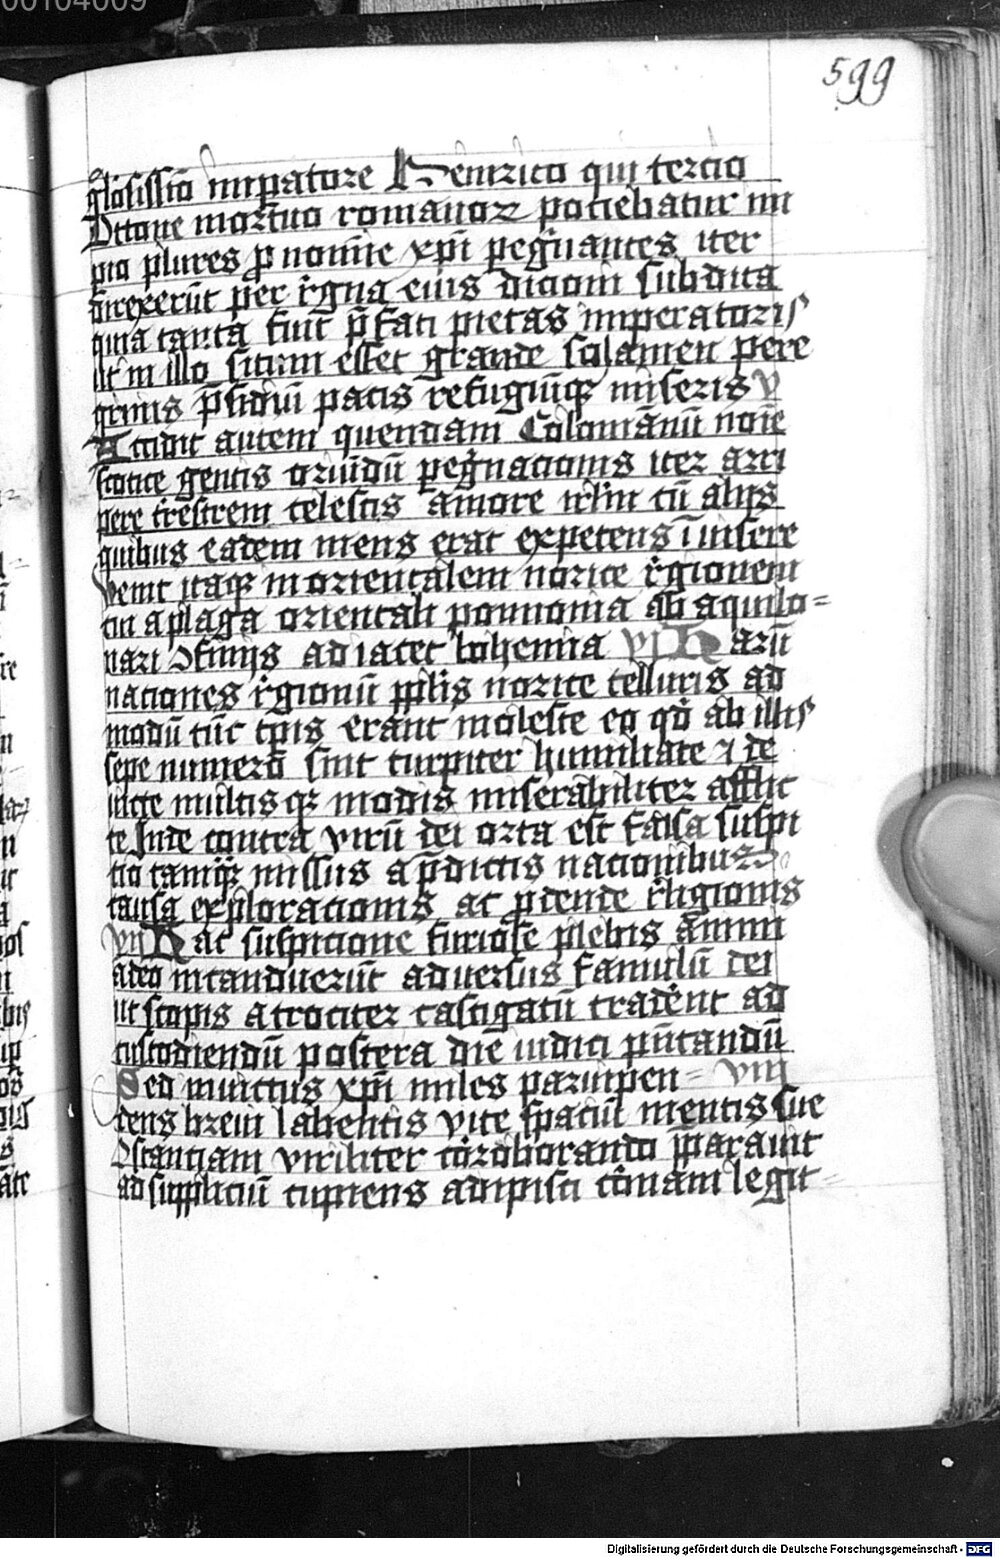 00104009
599
gl̄osissīo imꝑatore Heinrico qui tercio
Ottone mortuo romanoꝝ pociebatur im
pio plures ꝓ nomīe xp̄i pegͥnantes iter
direxerūt per rͤgna eius dicioni subdita
quia tanta fuit p̄fati pietas imperatoris
ut in illo situm esset grande solamen pere
grinis p̄sidiui pacis refugiūqꝫ miseris V
Accidit autem quendam Colomānū noīe
scotice gentis oriūdū pegͥnacionis iter arri
pere tͤrrestrem celestis amore ierl̄m cū alijs
quibus eadem mens erat expetens ī insere
venit itaqꝫ in orientalem norice rͤgionem
cui a plaga orientali pannonia ab aquilo=
nari ꝯfinijs adiacet bohemia VI Harū
naciones rͤgionū ppl̄is norice telluris ad
modū tūc tp̄is erant moleste eo qd̄ ab illis
sepe numerō sint turpiter humiliate ⁊ de
uicte multisqꝫ modis miserabiliter afflic
te Inde contra virū dei orta est falsa suspi
cio tamqꝫ missus a p̄dictis nacionibus
causa exploracionis ac ꝓdende rͤligionis
VII Hac suspicione furiose plebis animi
adeo incanduerūt aduersus famulū dei
ut scopis atrociter castigatū tradͤent ad
custodiendū postera die iudici p̄n̄tandū
Sed inuictus xp̄i miles paruipen= VIII
dens breui labentis vite spaciū mentis sue
ꝯstanciam viriliter coͬroborando p̄parauit
ad suppliciū cupiens adipisci coͬnam legit=
Digitalisierung gefördert durch die Deutsche Forschungsgemeinschaft - DFG